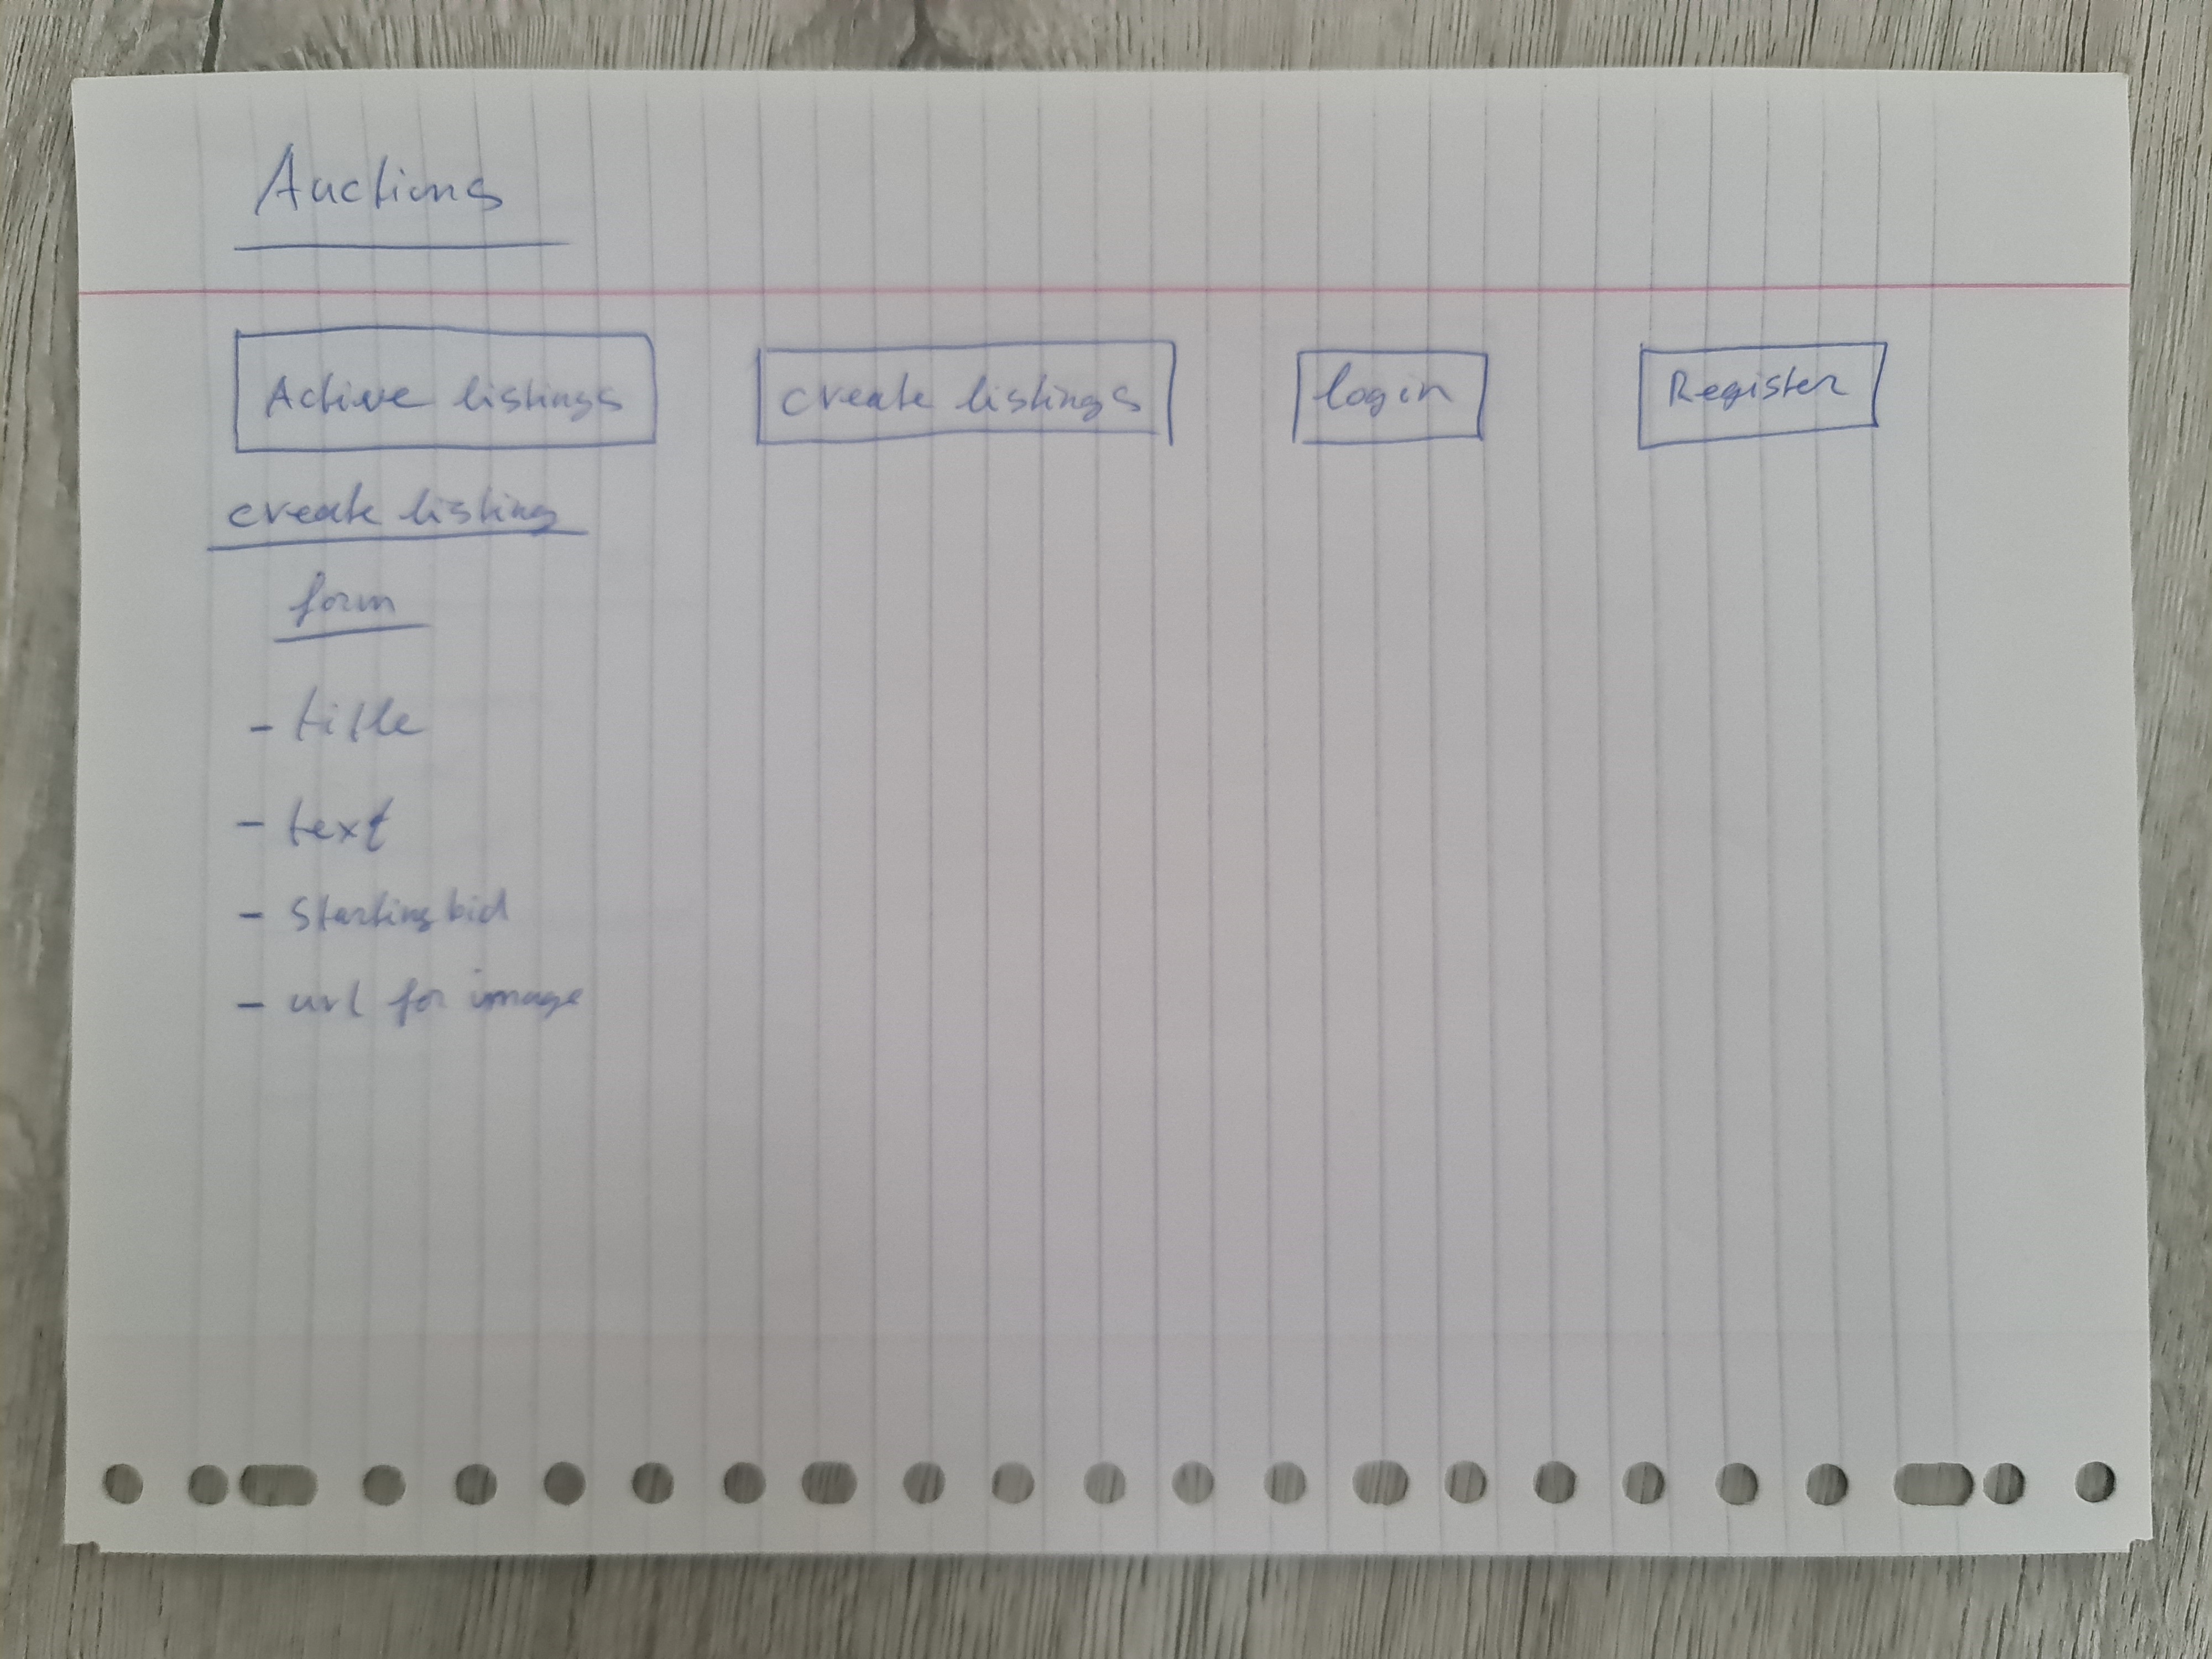 Auctions
Active listings create listings login Register
create listing
form
- title
- text
- Starting bid
- url for image